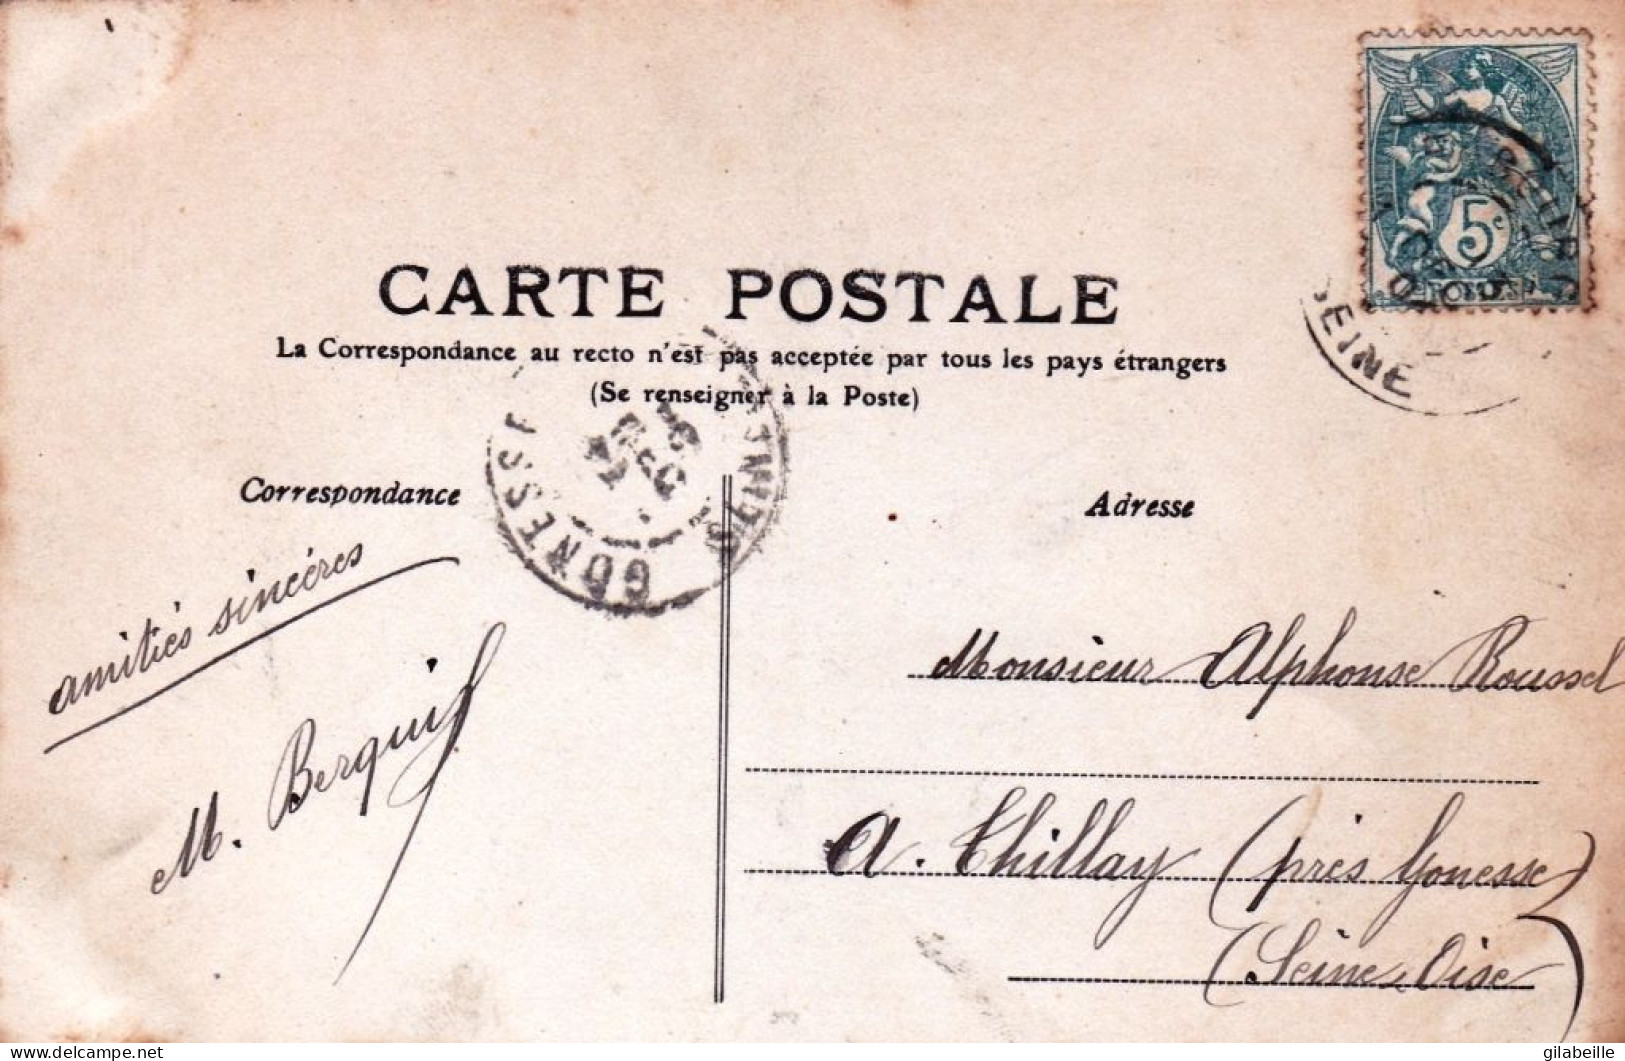 CARTE POSTALE
La Correspondance au recto n'est pas acceptée par tous les pays étrangers
(Se renseigner à la Poste)
Correspondance
Adresse
5c
SEINE
GONESSE
amitiés sincéres
M. Berquif
Monsieur Alphonse Roussel
A. Thillay (près Gonesse)
(Seine & Oise)
delcampe.net
gilabeille